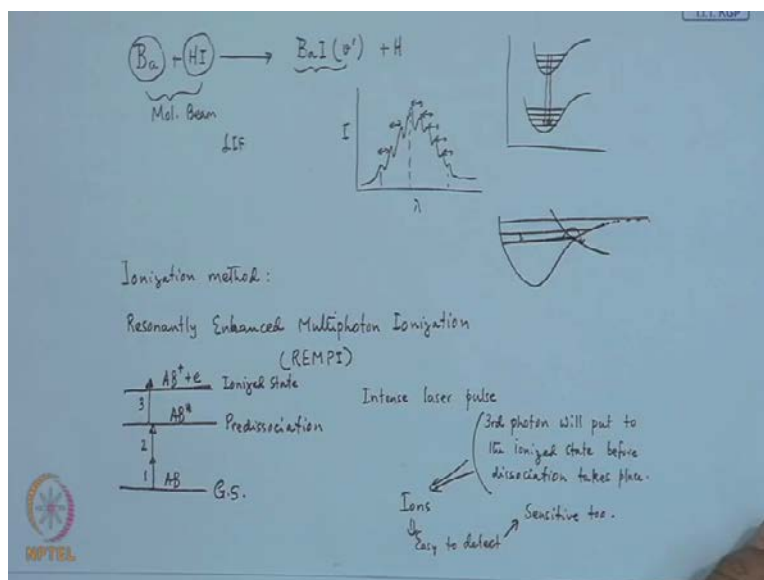 I.I.T. KGP
Ba + HI → BaI (v') + H
Mol. Beam
LIF
I
λ
Ionization method:
Resonantly Enhanced Multiphoton Ionization
(REMPI)
AB⁺ + e Ionized State
3
AB* Predissociation
2
1 AB G.S.
Intense laser pulse
3rd photon will put to
the ionized state before
dissociation takes place.
Ions
Easy to detect
Sensitive too.
NPTEL